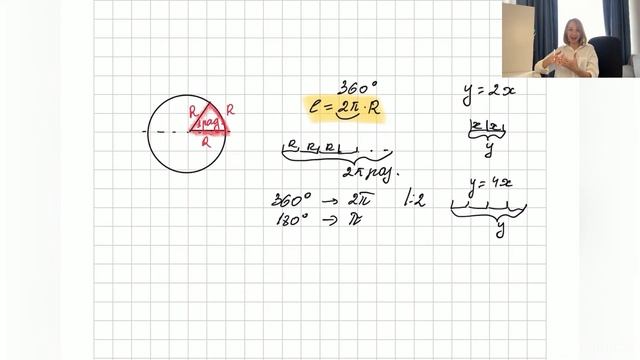 R
R
1 рад
R
360°
ℓ = 2π · R
R R R
2π раз.
360° → 2π | :2
180° → π
y = 2x
x x
y
y = 4x
y